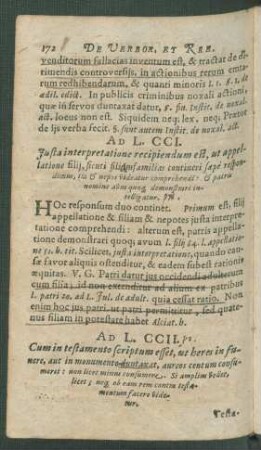 172 DE VERBOR. ET RER.
venditorum fallacias inventum est, & tractat de
rimendis controversijs, in actionibus rerum emtarum
redhibendarum, & quanti minoris l. 1. §. 1. de
ædil. edict. In publicis criminibus noxali actioni,
quæ in servos duntaxat datur, §. fin. Instit. de noxal.
act. locus non est. Siquidem neq; lex, neq; Prætor
de ijs verba fecit. §. sunt autem Instit. de noxal. act.
AD L. CCI.
Justa interpretatione recipiendum est, ut appel-
latione filij, sicuti filiumfamilias contineri sæpe respon-
dimus, ita & nepos videatur comprehendi: & patris
nomine avus quoq; demonstrari in-
telligatur.
HOc responsum duo continet. Primum est, filij
appellatione & filiam & nepotes justa interpre-
tatione comprehendi: alterum est, patris appella-
tione demonstrari quoq; avum l. filij 84. l. appellatio-
ne 51. h. tit. Scilicet, justa interpretatione, quoties
favorabilior aliquis ostenditur, & eadem subest rationis
æquitas. V. G. Patri datur jus occidendi adulterum
cum filia: id non extenditur ad alium ex patribus
l. patri 20. ad L. Jul. de adult. quia cessat ratio. Non
enim hoc jus patri ut patri permittitur, sed quate-
nus filiam in potestate habet Alciat. h.
AD L. CCII.
Cum in testamento scriptum esset, ut heres in fu-
nere, aut in monumento duntaxat, aureos centum consu-
meret: non licet minus consumere. Si amplius vellet,
licet; neq; ob eam rem contra testa-
mentum facere vide-
tur.
Testa-